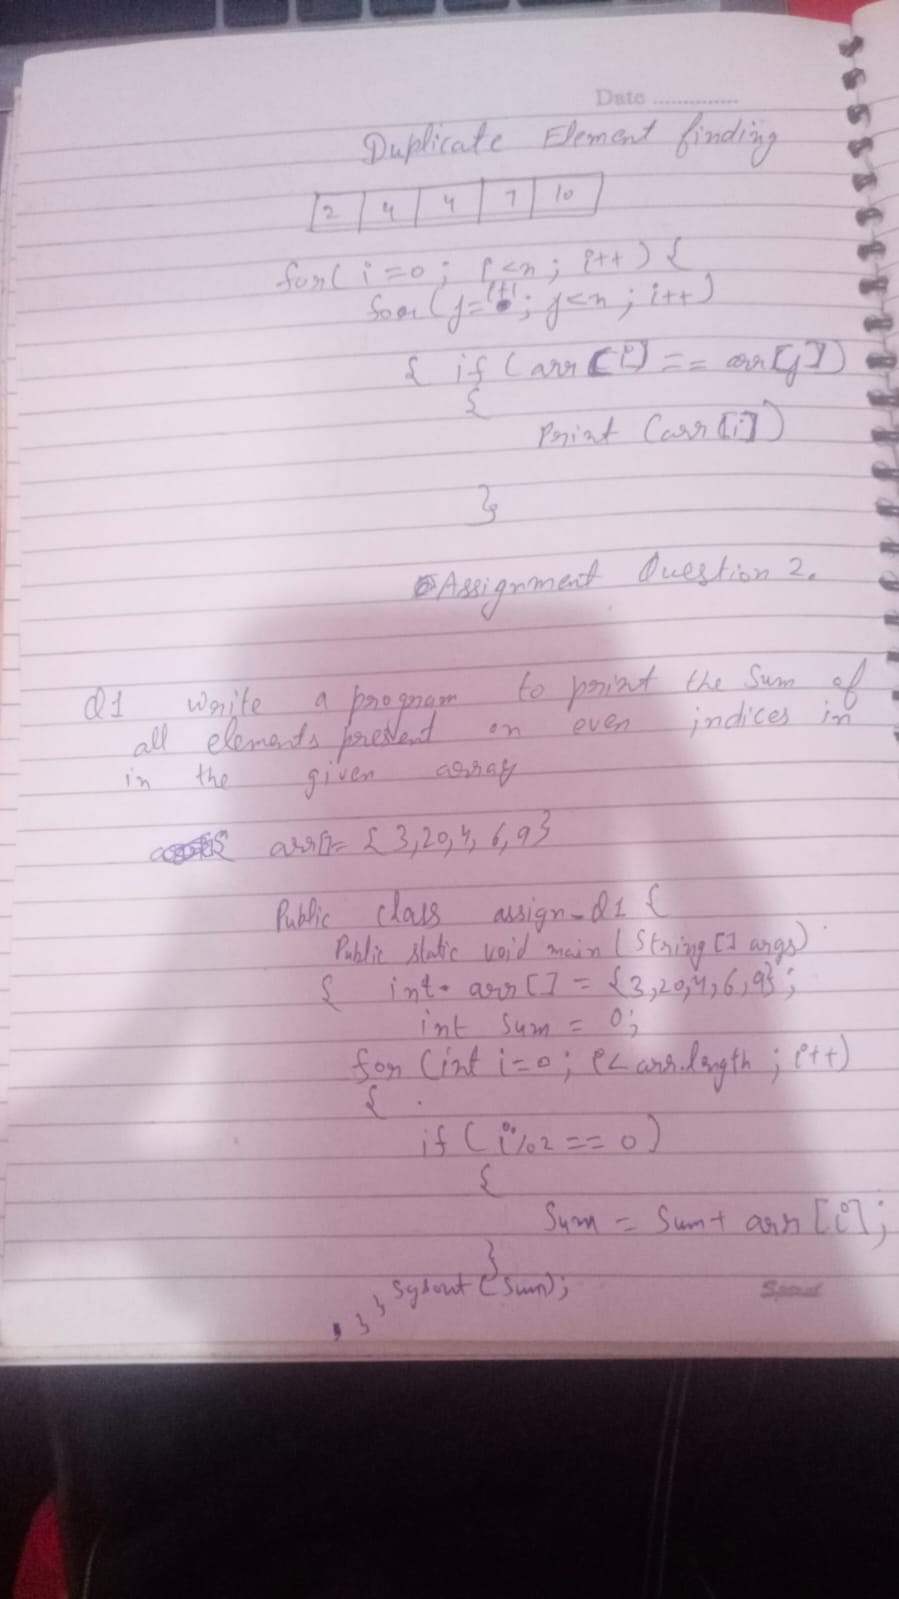 Date ..............
Duplicate Element finding
2 4 4 7 10
for( i=0 ; i<n ; i++ ) {
for (j=i+1; j<n ; i++)
{ if ( arr [i] == arr [j])
{
Print (arr [i])
}
Assignment Question 2.
Q1 Write a program to print the Sum of
all elements present on even indices in
in the given array
arr[]= { 3,20,4, 6, 9}
Public class assign-Q1 {
Public static void main ( String [] args)
{ int arr [] = {3,20,4,6,9};
int sum = 0;
for (int i=0 ; i< arr.length ; i++)
{
if ( i%2 == 0 )
{
Sum = Sum+ arr [i];
}
} Sysout (sum);
, } }